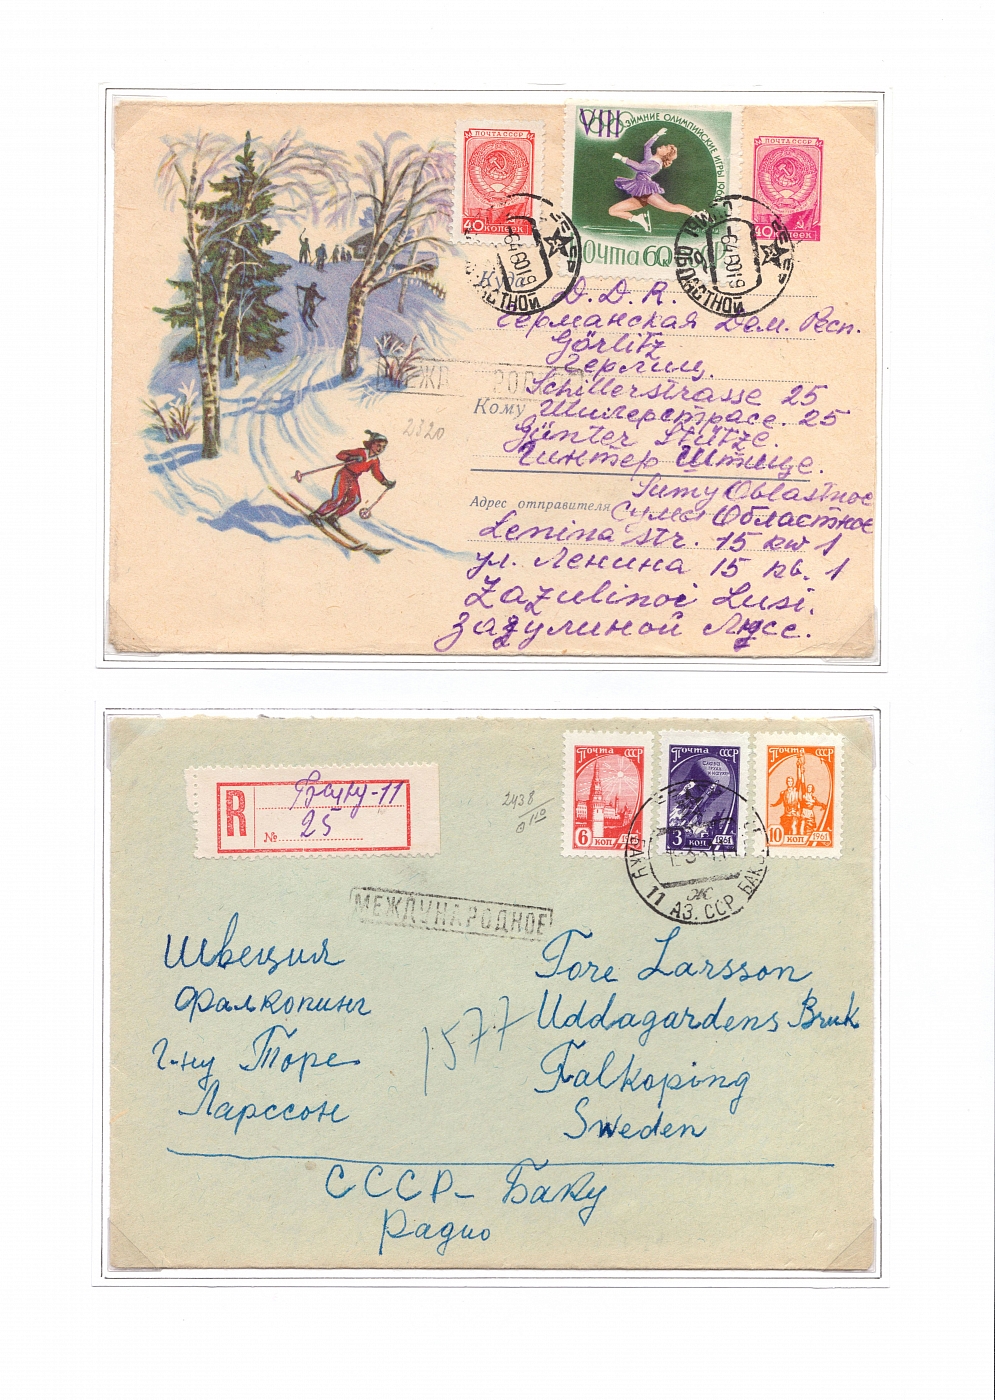 ПОЧТА СССР
40 КОПЕЕК
VIII ЗИМНИЕ ОЛИМПИЙСКИЕ ИГРЫ 1960
Почта 60
ПОЧТА СССР
40 КОПЕЕК
646019
646019
Куда
D. D. R.
Германская Дем. Респ.
Görlitz
Герлиц.
Schillerstrasse 25
Кому Шилерстрасе. 25
2320
Günter Stütze.
Гинтер Штице.
Sumy Oblastnoe
Адрес отправителя Сумы Областное
Lenina str. 15 kw 1
ул. Ленина 15 кв. 1
Zazulinoi Lusi.
Зазулиной Люсе.
Почта СССР
6 КОП 1961
Почта СССР
СЛАВА ТРУДУ И НАУКЕ
3 КОП 1961
Почта СССР
10 КОП 1961
R
Баку-11
№ 25
2438
БАКУ 11 АЗ. ССР БАКЫ
Ж
МЕЖДУНАРОДНОЕ
Швеция
Фалкопинг
г-ну Торе
Ларссон
1577
Tore Larsson
Uddagardens Bruk
Falkoping
Sweden
СССР - Баку
Радио